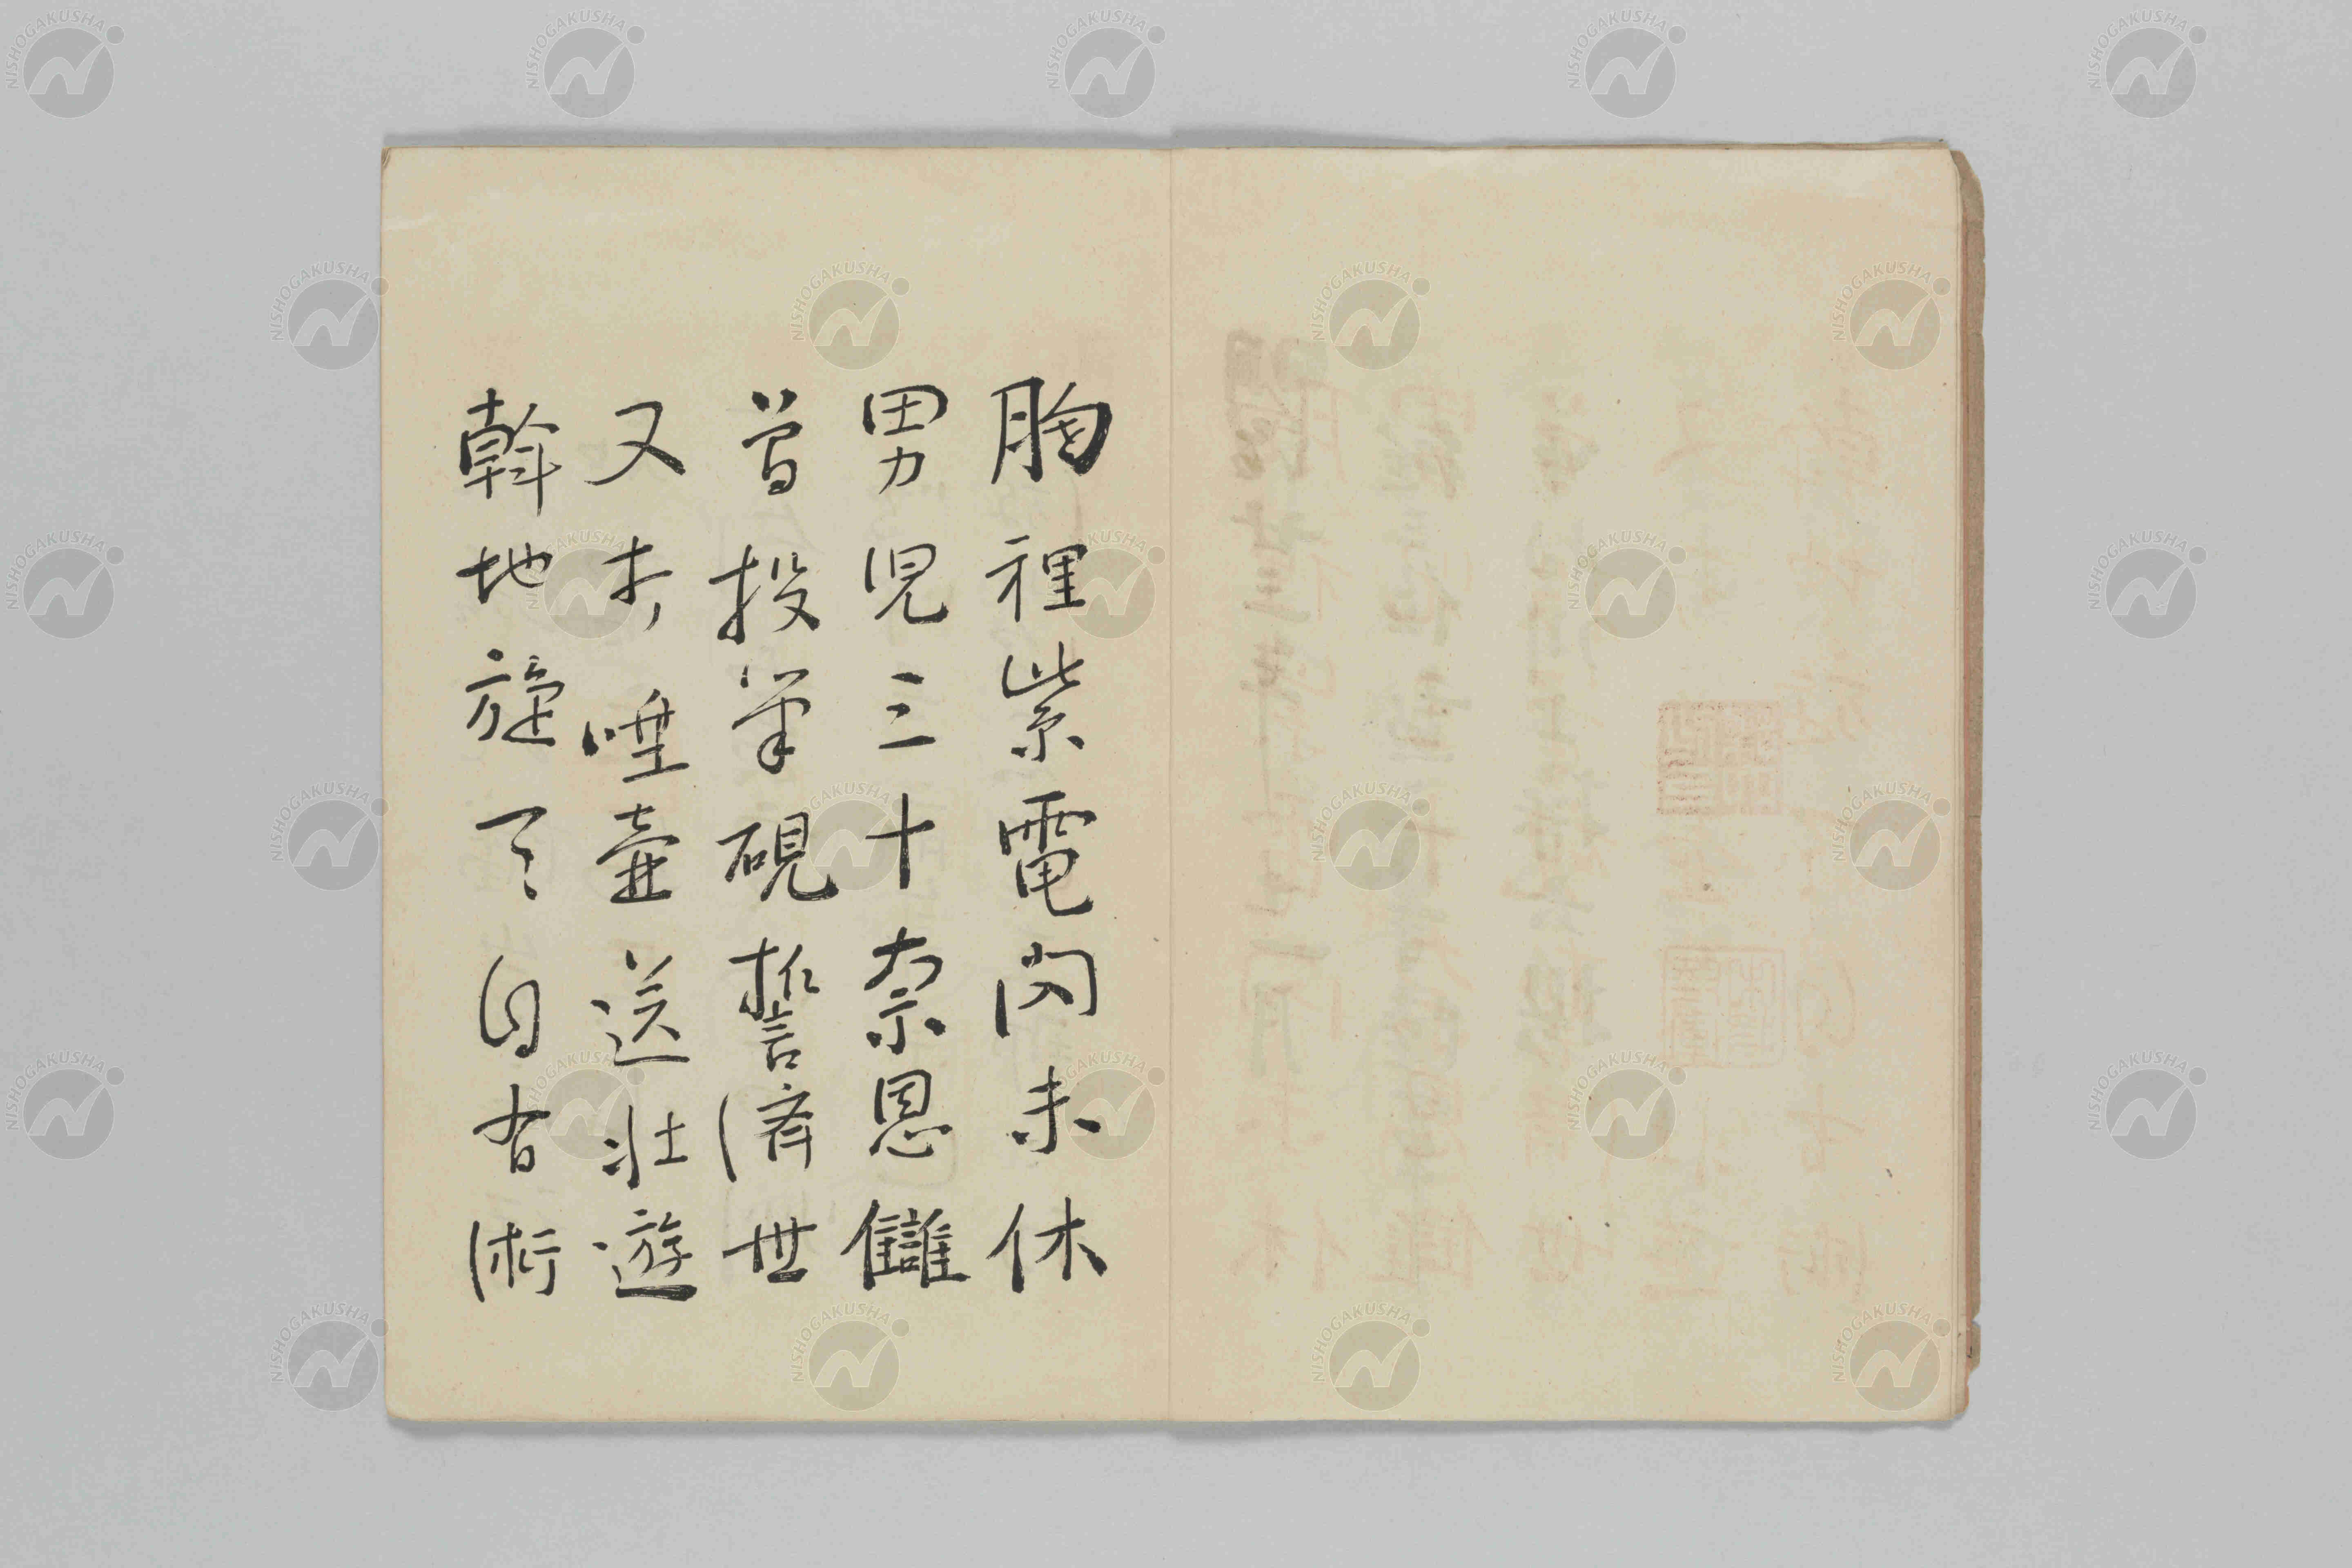 胸裡紫電閃未休
男児三十奈恩讎
曽投筆硯誓済世
又唾壷送壮遊
斡地旋天自有術
NISHOGAKUSHA